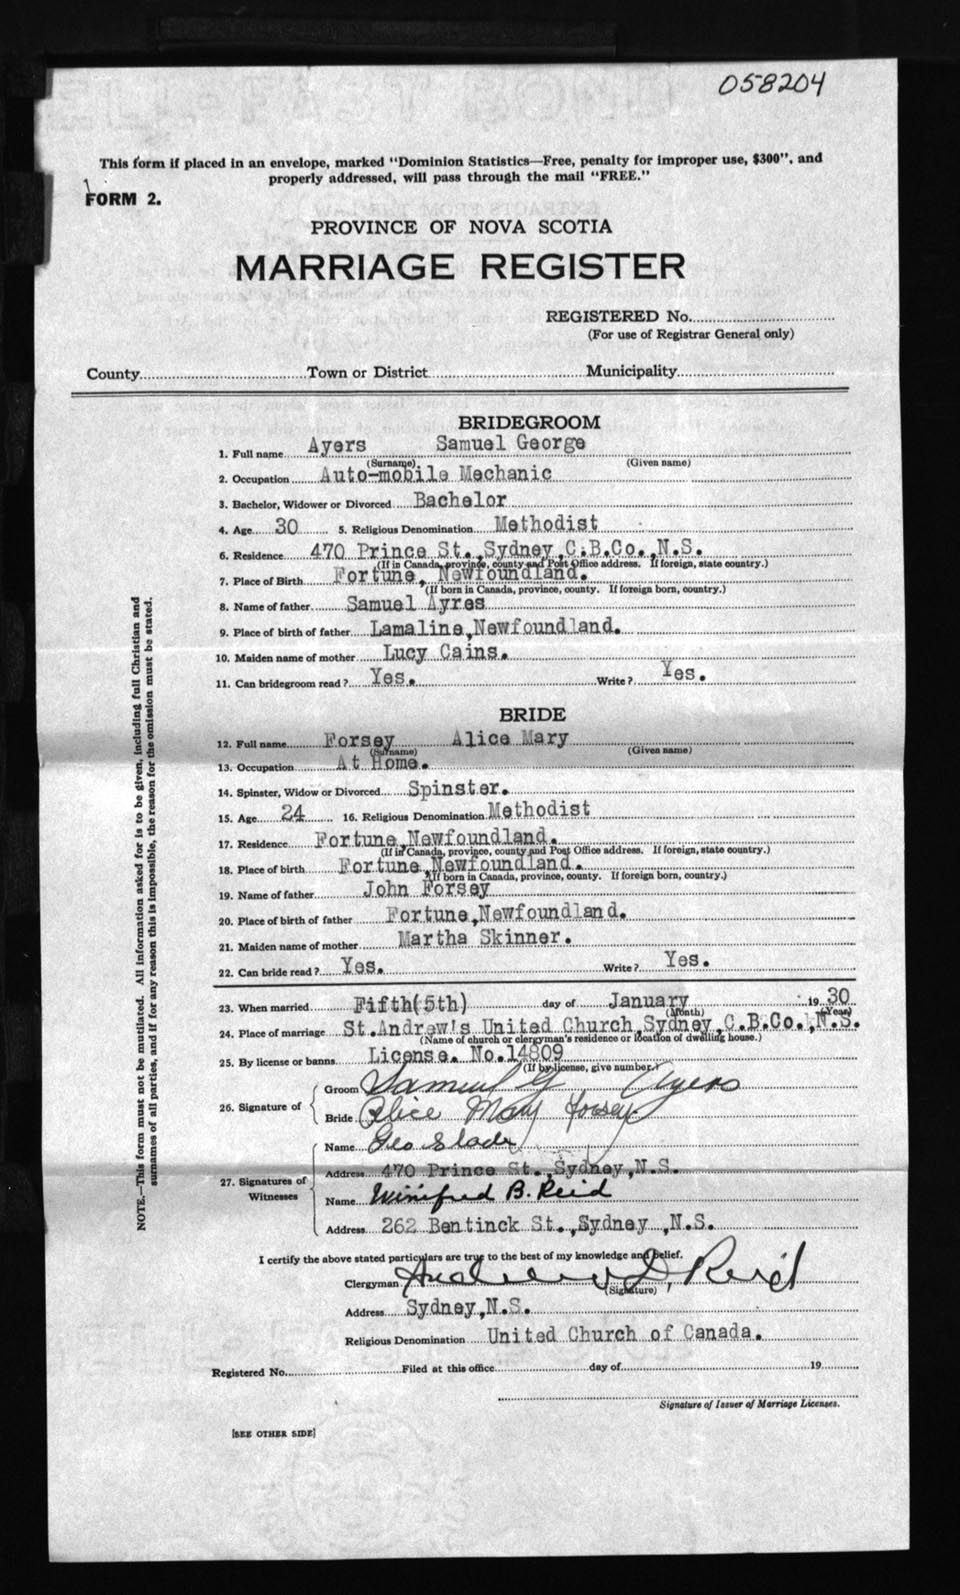 058204
This form if placed in an envelope, marked "Dominion Statistics—Free, penalty for improper use, $300", and
properly addressed, will pass through the mail "FREE."
FORM 2.
PROVINCE OF NOVA SCOTIA
MARRIAGE REGISTER
REGISTERED No.
(For use of Registrar General only)
County Town or District Municipality
BRIDEGROOM
1. Full name Ayers Samuel George
(Surname) (Given name)
2. Occupation Auto-mobile Mechanic
3. Bachelor, Widower or Divorced Bachelor
4. Age 30 5. Religious Denomination Methodist
6. Residence 470 Prince St., Sydney, C.B.Co., N.S.
(If in Canada, province, county and Post Office address. If foreign, state country.)
7. Place of Birth Fortune, Newfoundland.
(If born in Canada, province, county. If foreign born, country.)
8. Name of father Samuel Ayres
9. Place of birth of father Lamaline, Newfoundland.
10. Maiden name of mother Lucy Cains.
11. Can bridegroom read? Yes. Write? Yes.
BRIDE
12. Full name Forsey Alice Mary
(Surname) (Given name)
13. Occupation At Home.
14. Spinster, Widow or Divorced Spinster.
15. Age 24 16. Religious Denomination Methodist
17. Residence Fortune, Newfoundland.
(If in Canada, province, county and Post Office address. If foreign, state country.)
18. Place of birth Fortune, Newfoundland.
(If born in Canada, province, county. If foreign born, country.)
19. Name of father John Forsey
20. Place of birth of father Fortune, Newfoundland.
21. Maiden name of mother Martha Skinner.
22. Can bride read? Yes. Write? Yes.
23. When married Fifth(5th) day of January 1930
(Month) (Year)
24. Place of marriage St. Andrew's United Church, Sydney, C.B.Co., N.S.
(Name of church or clergyman's residence or location of dwelling house.)
25. By license or banns License. No. 14809
(If by license, give number.)
26. Signature of
Groom Samuel G Ayers
Bride Alice Mary Forsey
27. Signatures of Witnesses
Name Geo Slade
Address 470 Prince St., Sydney, N.S.
Name Winifred B. Reid
Address 262 Bentinck St., Sydney, N.S.
I certify the above stated particulars are true to the best of my knowledge and belief.
Clergyman Andrew D. Reid
(Signature)
Address Sydney, N.S.
Religious Denomination United Church of Canada.
Registered No. Filed at this office day of 19
Signature of Issuer of Marriage Licenses.
[SEE OTHER SIDE]
NOTE.—This form must not be mutilated. All information asked for is to be given, including full Christian and
surnames of all parties, and if for any reason this is impossible, the reason for the omission must be stated.